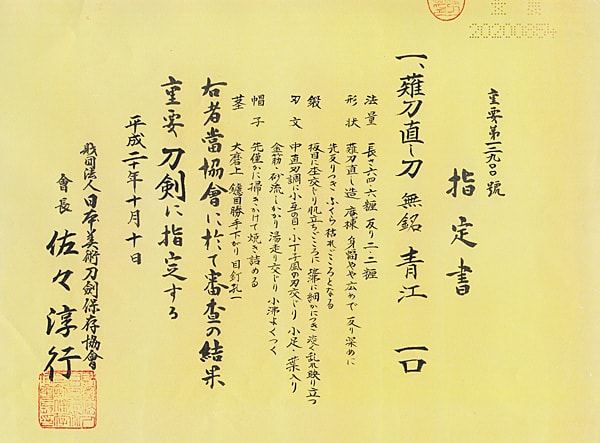 重要第一三九〇〇號
指定書
一、薙刀直し刀 無銘 青江 一口
法量 長さ六四・六糎 反り二・二糎
形状 薙刀直し造 庵棟 身幅やや広めで 反り深めに
先反りつき ふくら枯れごころとなる
鍛 板目に杢交じり 肌立ちごころに 地沸細かにつき 淡く乱れ映り立つ
刃文 中直刃調に小互の目・小丁子風の刃交じり 小足・葉入り
金筋・砂流しかかり 湯走り交じり 小沸よくつく
帽子 先僅かに掃きかけて焼き詰める
茎 大磨上 鑢目勝手下がり 目釘孔一
右者當協會に於て審査の結果
重要刀剣に指定する
平成二十年十月十日
財団法人日本美術刀劍保存協會
會長 佐々淳行
20200854